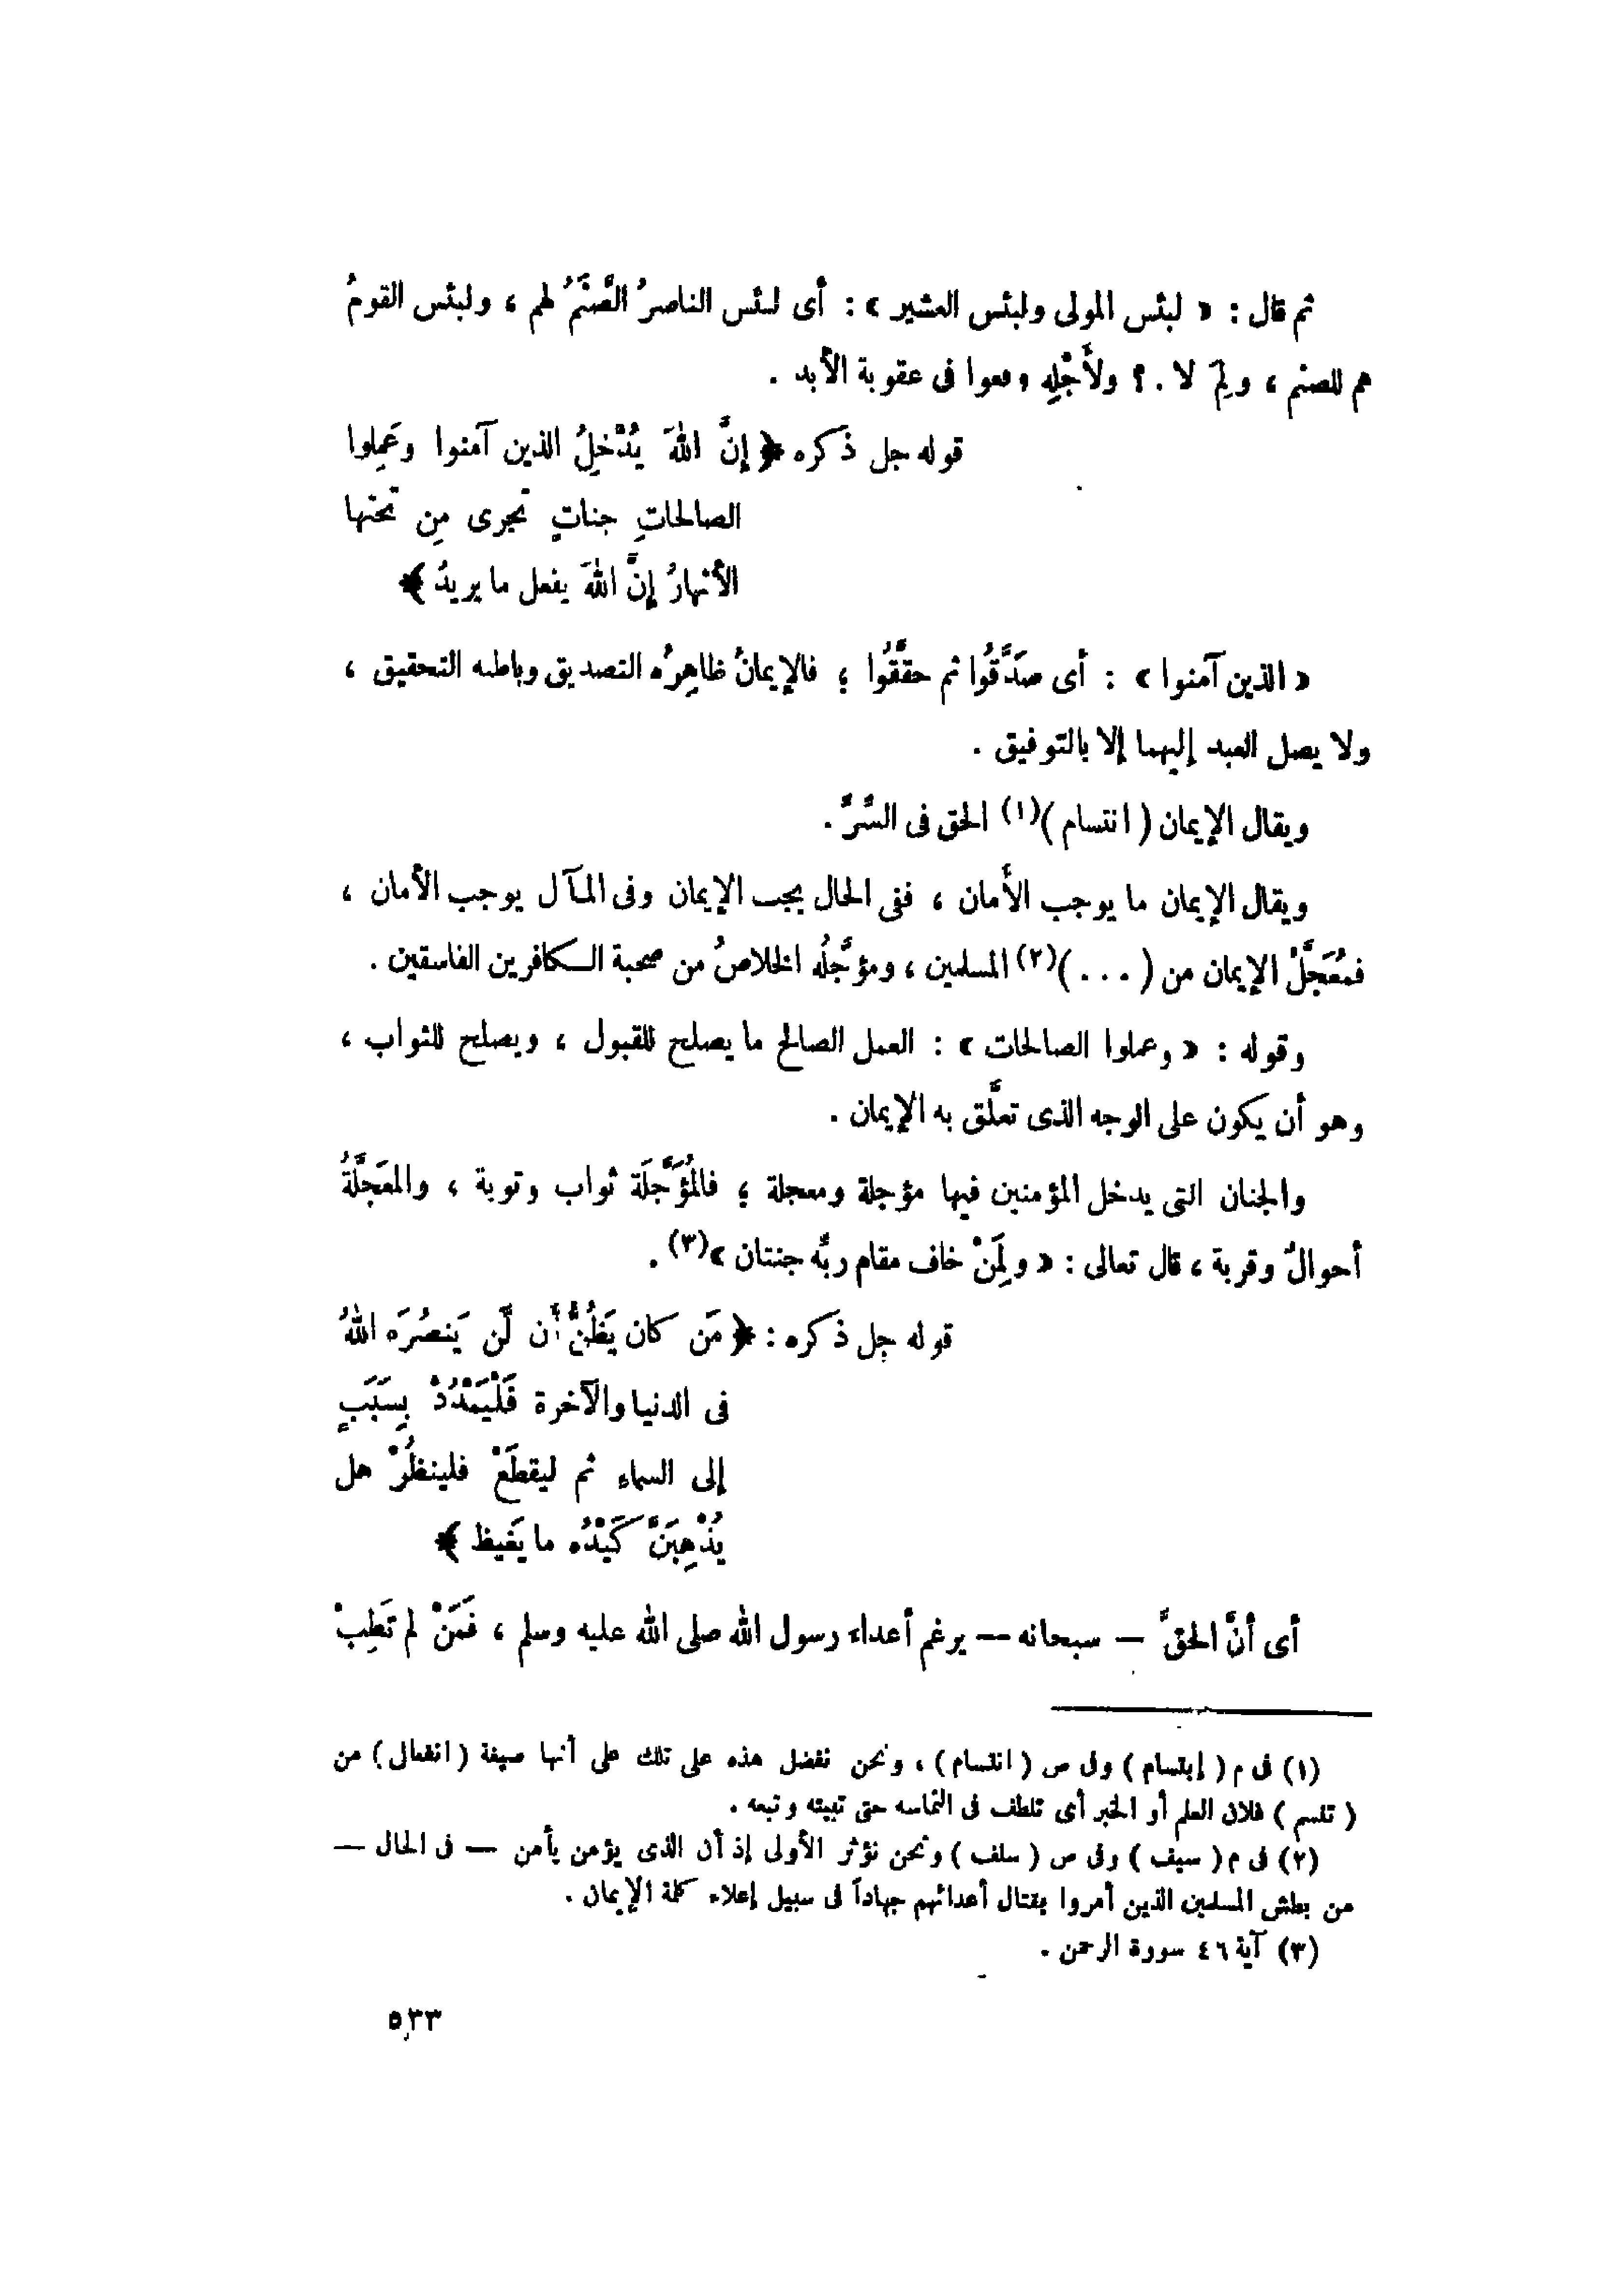 ثم قال : « لبئس المولى ولبئس العشير » : أى لبئس الناصرُ الصَّنَمُ لهم ، ولبئس القومُ
هم للصنم ، ولِمَ لا .؟ ولأَجْلِه وقعوا فى عقوبة الأبد .
قوله جل ذكره ﴿ إنَّ اللهَ يُدْخِلُ الذين آمنوا وعَمِلوا
الصالحاتِ جناتٍ تَجرى مِن تَحتها
الأنهارُ إنَّ اللهَ يفعل ما يريدُ ﴾
« الذين آمنوا » : أى صَدَّقُوا ثم حقَّقُوا ؛ فالإيمانُ ظاهِرُه التصديق وباطنه التحقيق ،
ولا يصل العبد إليهما إلا بالتوفيق .
ويقال الإيمان ( انتسام )(١) الحق فى السِّرِّ .
ويقال الإيمان ما يوجب الأَمان ، ففى الحال يجب الإيمان وفى المآل يوجب الأمان ،
فمُعَجَّلُ الإيمان من ( . . . )(٢) المسلمين ، ومؤجَّلُه الخلاصُ من صحبة الكافرين الفاسقين .
وقوله : « وعملوا الصالحات » : العمل الصالح ما يصلح للقبول ، ويصلح للثواب ،
وهو أن يكون على الوجه الذى تعلَّق به الإيمان .
والجنان التى يدخل المؤمنين فيها مؤجلة ومعجلة ؛ فالمُؤَجَّلَة ثواب وتوبة ، والمعَجَّلَةُ
أحوالٌ وقربة ، قال تعالى : « ولِمَنْ خاف مقام ربِّه جنتان »(٣) .
قوله جل ذكره : ﴿ مَن كان يَظُنُّ أَن لَّن يَنصُرَه اللهُ
فى الدنيا والآخرة فَلْيَمْدُدْ بِسَبَبٍ
إلى السماء ثم ليقطَعْ فلينظُرْ هل
يُذْهِبَنَّ كَيْدُه ما يَغيظ ﴾
أى أنَّ الحقَّ — سبحانه — يرغم أعداء رسول الله صلى الله عليه وسلم ، فَمَنْ لم تَطِبْ
(١) فى م ( إبتسام ) وفى ص ( انتسام ) ، ونحن نفضل هذه على تلك على أنها صيغة ( انفعال ) من
( تنسم ) فلان العلم أو الخبر أى تلطف فى التماسه حتى تبينه وتبعه .
(٢) فى م ( سيف ) وفى ص ( سلف ) ونحن نؤثر الأولى إذ أن الذى يؤمن يأمن — فى الحال —
من بطش المسلمين الذين أمروا بقتال أعدائهم جهاداً فى سبيل إعلاء كلمة الإيمان .
(٣) آية ٤٦ سورة الرحمن .
٥٣٣